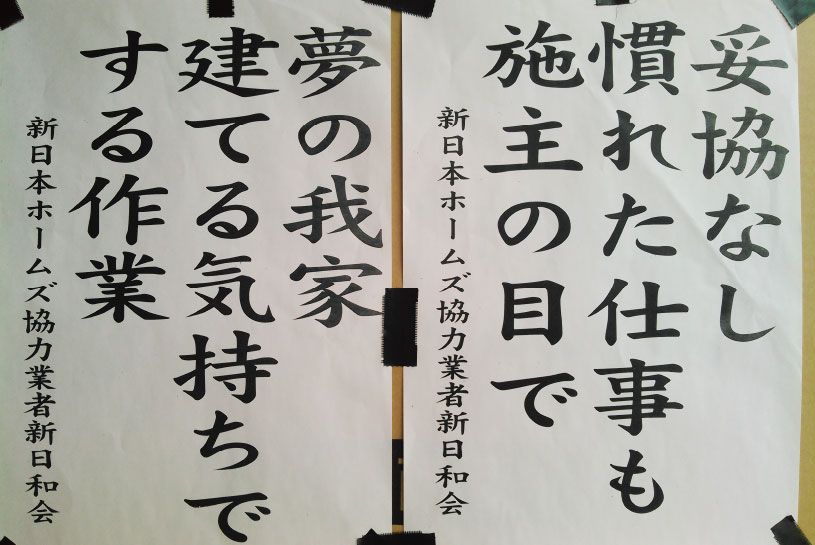 妥協なし
慣れた仕事も
施主の目で
新日本ホームズ協力業者新日和会
夢の我家
建てる気持ちで
する作業
新日本ホームズ協力業者新日和会